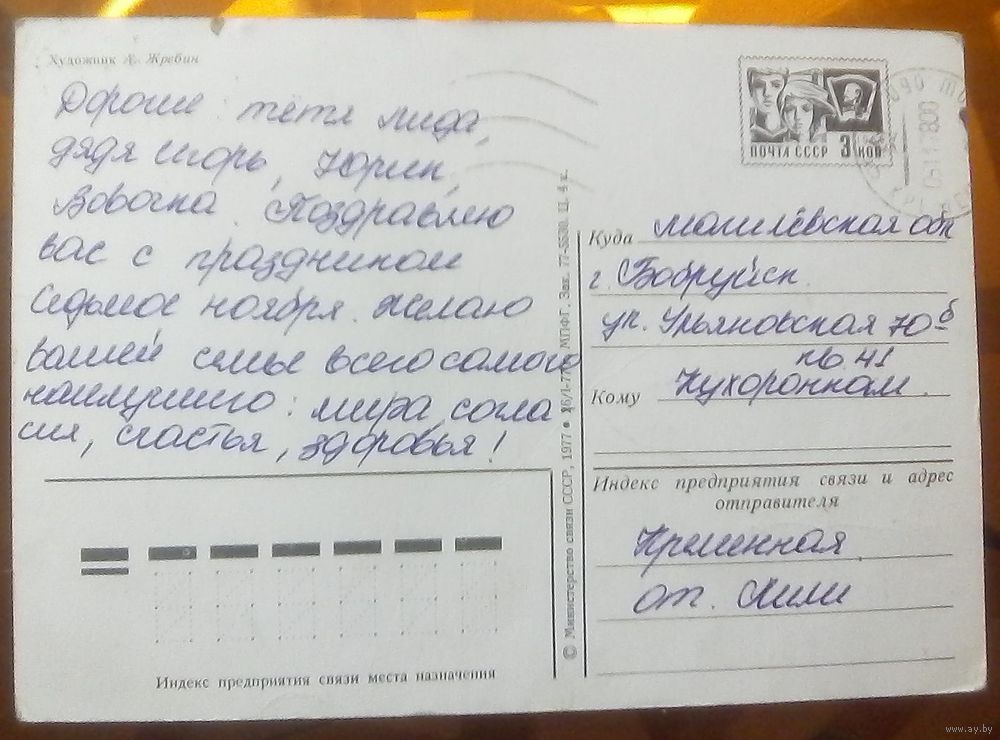 Художник А. Жребин
Дорогие тётя лида,
дядя игорь, Юрик,
Вовочка. Поздравляю
вас с праздником
Седьмое ноября. Желаю
вашей семье всего самого
наилучшего: мира, согла
сия, счастья, здоровья!
Индекс предприятия связи места назначения
© Министерство связи СССР, 1977 ● МПФГ. Зак. 77-5530. Ц. 4 к.
ПОЧТА СССР 3 КОП
Куда могилёвская обл
г. Бобруйск.
ул. Ульяновская 70-б
кв. 41
Кому Кухоронкам.
Индекс предприятия связи и адрес
отправителя
Кременная
от. Лили
www.ay.by